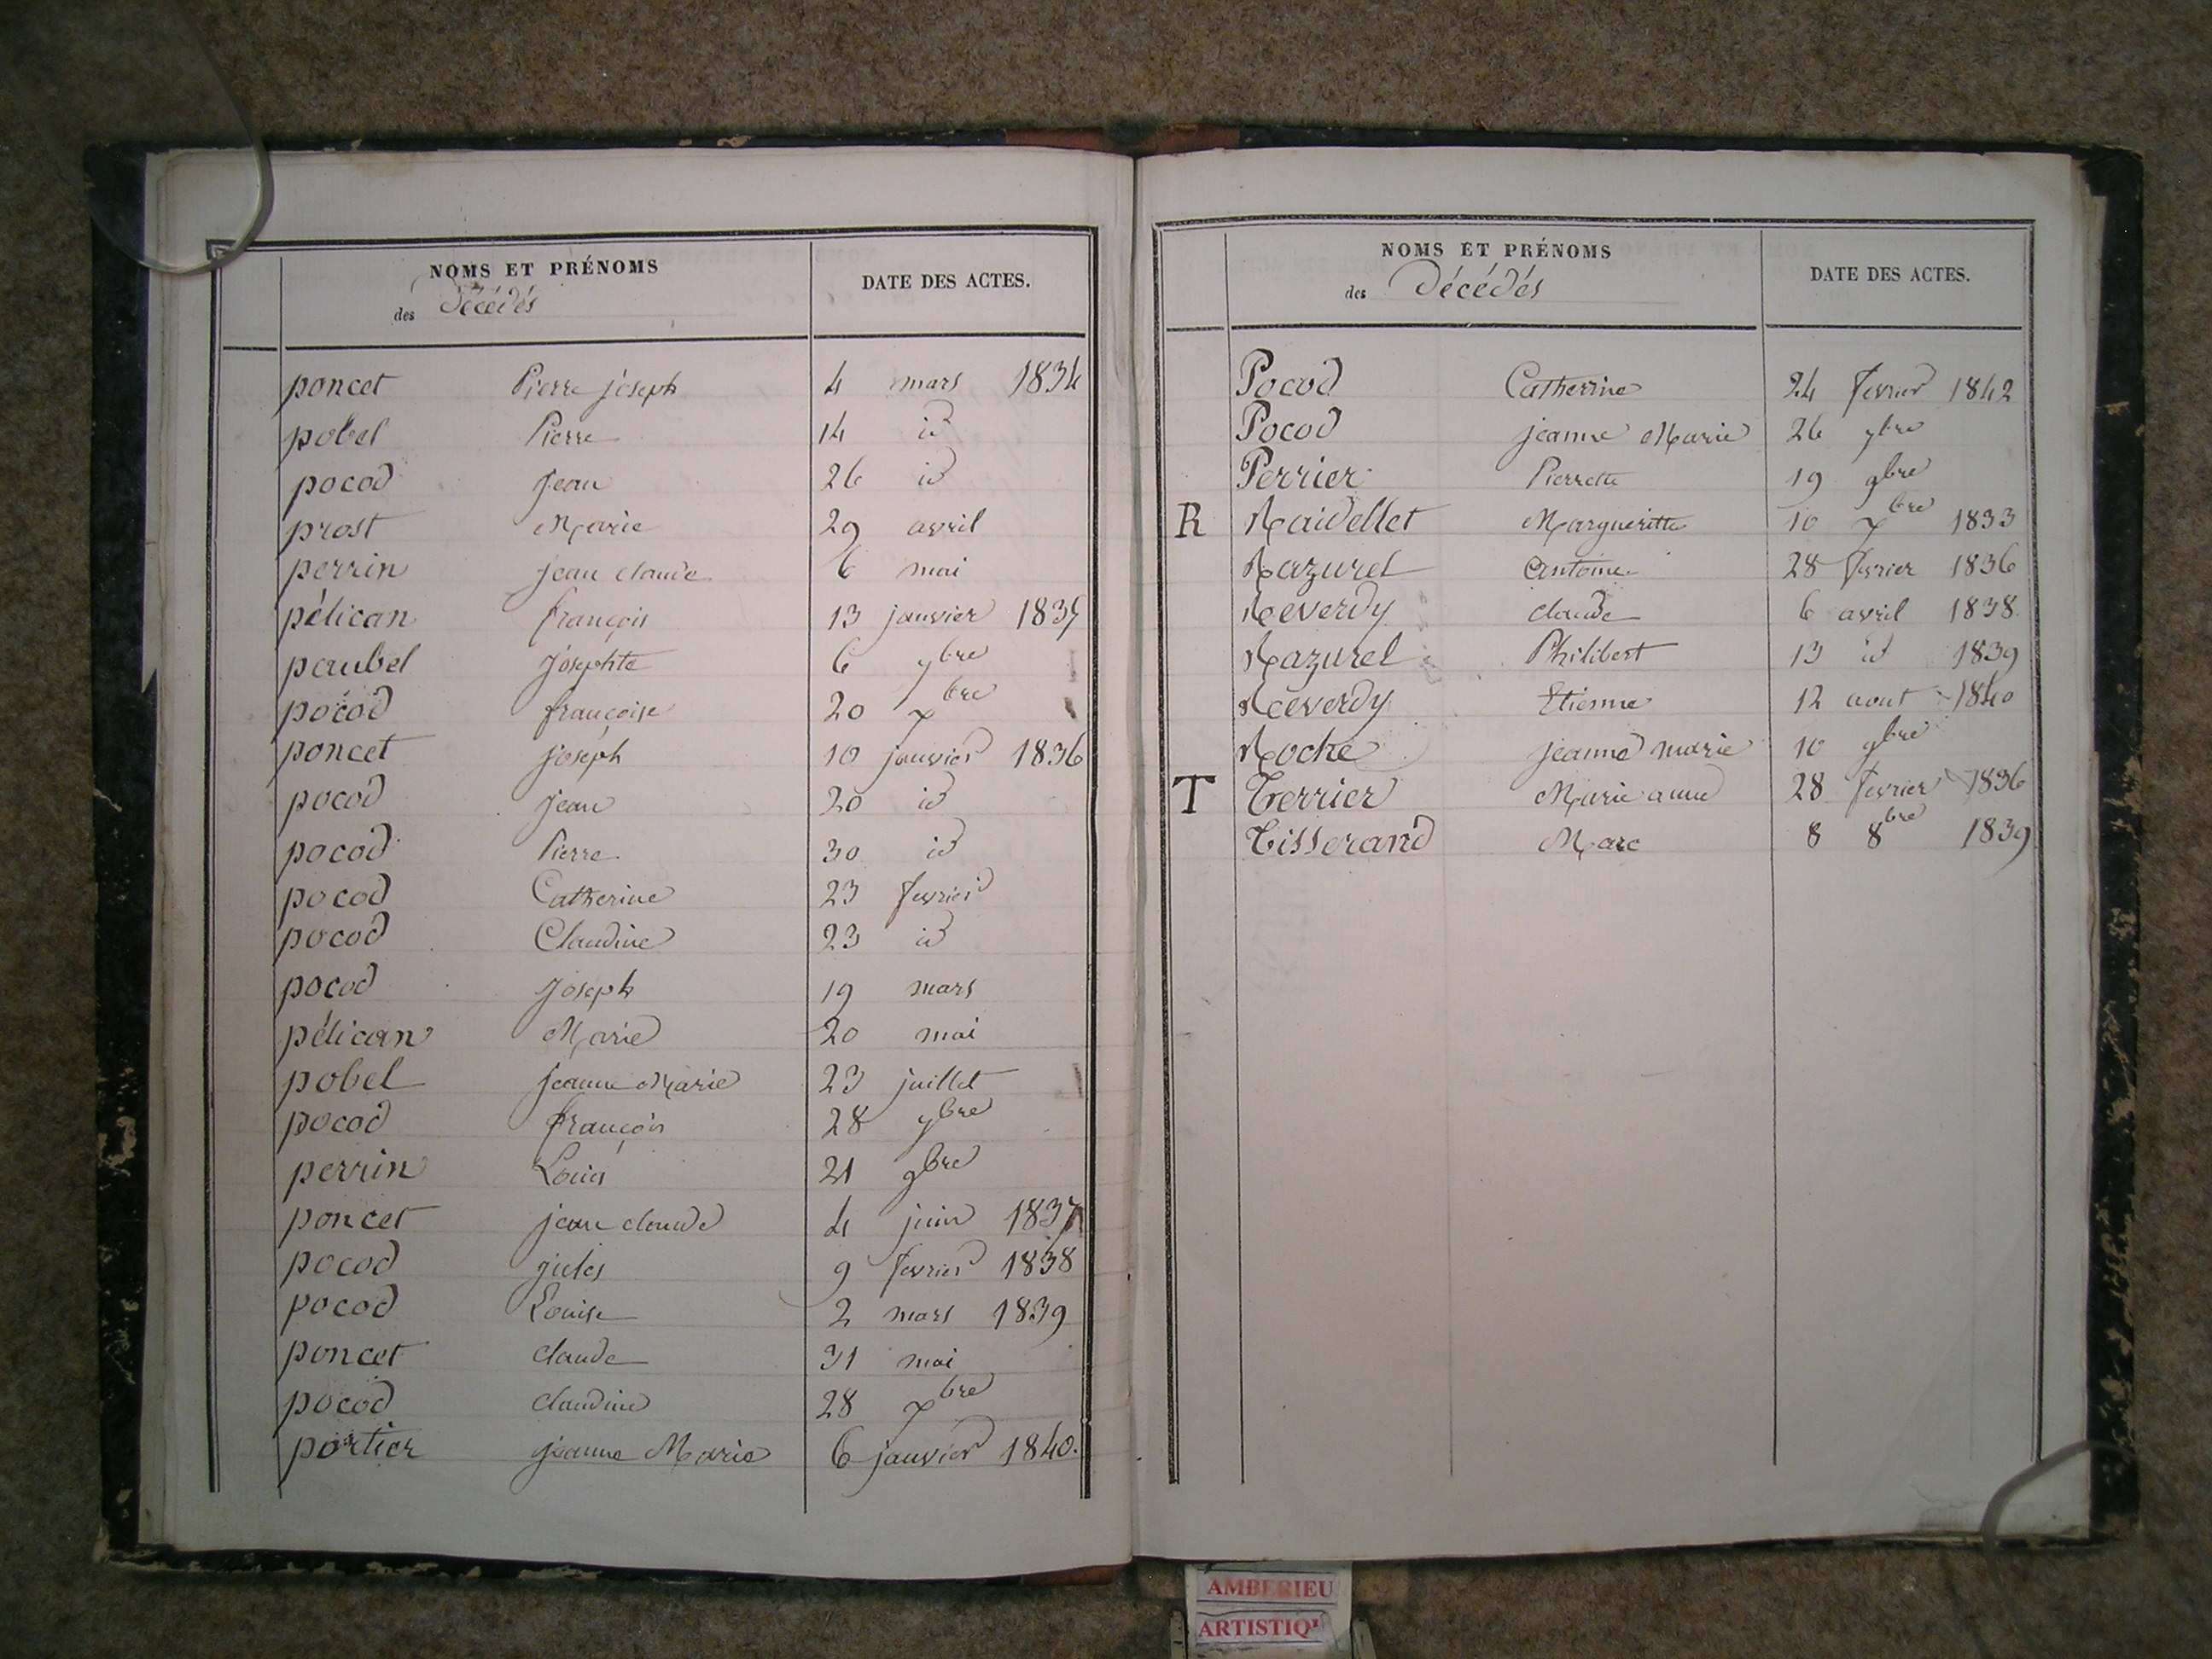 NOMS ET PRÉNOMS
des Décédés
DATE DES ACTES.
poncet Pierre joseph 4 mars 1834
pobel Pierre 14 id
pocod jean 26 id
prost Marie 29 avril
perrin jean claude 6 mai
pélican françois 13 janvier 1835
paubel josephte 6 9bre
pocod françoise 20 7bre
poncet joseph 10 janvier 1836
pocod jean 20 id
pocod Pierre 30 id
pocod Catherine 23 fevrier
pocod Claudine 23 id
pocod joseph 19 mars
pélican Marie 20 mai
pobel jeanne Marie 23 juillet
pocod françois 28 9bre
perrin Louis 21 9bre
poncet jean claude 4 juin 1837
pocod jules 9 fevrier 1838
pocod Louise 2 mars 1839
poncet claude 31 mai
pocod claudine 28 7bre
portier jeanne Marie 6 janvier 1840.
NOMS ET PRÉNOMS
des Décédés
DATE DES ACTES.
Pocod Catherine 24 fevrier 1842
Pocod jeanne Marie 26 9bre
Perrier Pierrette 19 9bre
R Raidellet Margueritte 10 7bre 1833
Razurel Antoine 28 fevrier 1836
Reverdy claude 6 avril 1838
Razurel Philibert 13 id 1839
Reverdy Etienne 12 aout 1840
Roche jeanne marie 10 9bre
T Terrier Marie anne 28 fevrier 1836
Tisserand Marc 8 8bre 1839
AMBERIEU
ARTISTIQU